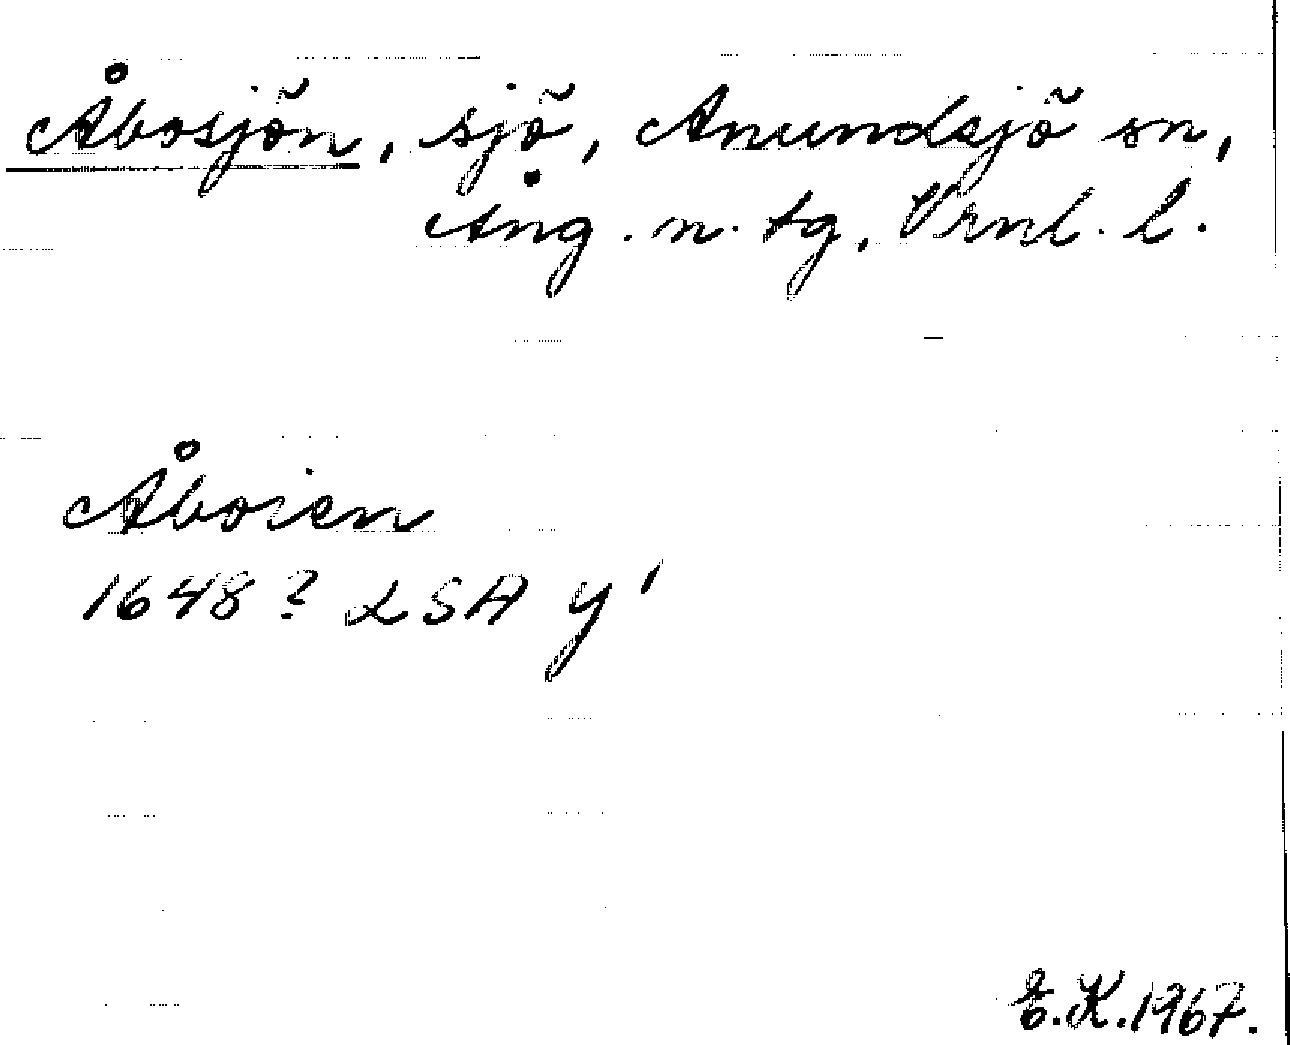 Åbosjön, sjö, Anundsjö sn,
Ång. n. tg, Vrnl. l.
Åboien
1648? LSA y'
E.K. 1967.